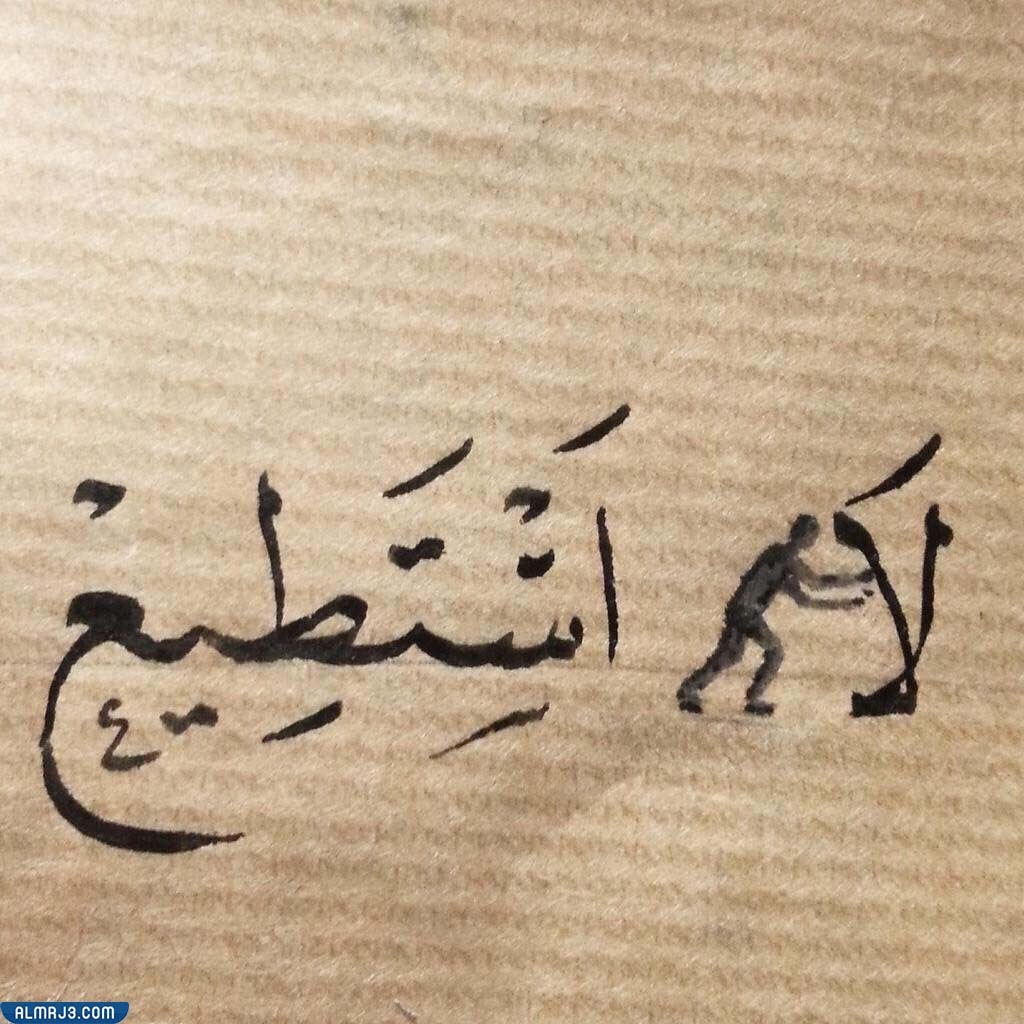 لَا اسْتَطِيعْ
ALMRJ3.COM